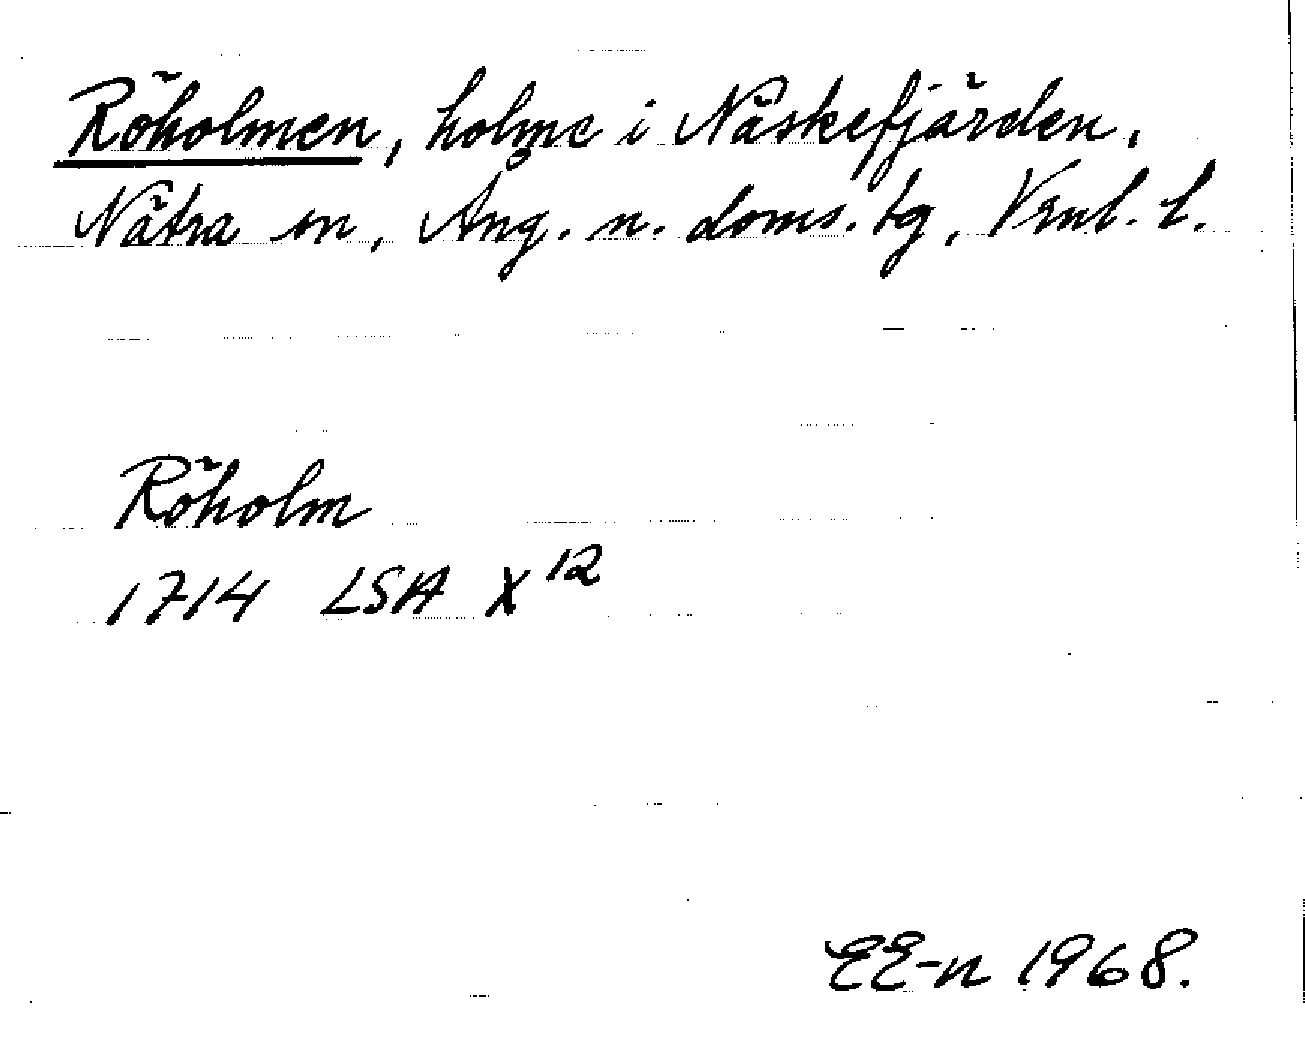 Röholmen, holme i Näskefjärden,
Nätra sn, Ång. n. doms. tg, Vrnl. l.
Röholm
1714 LSA X 12
EE-n 1968.